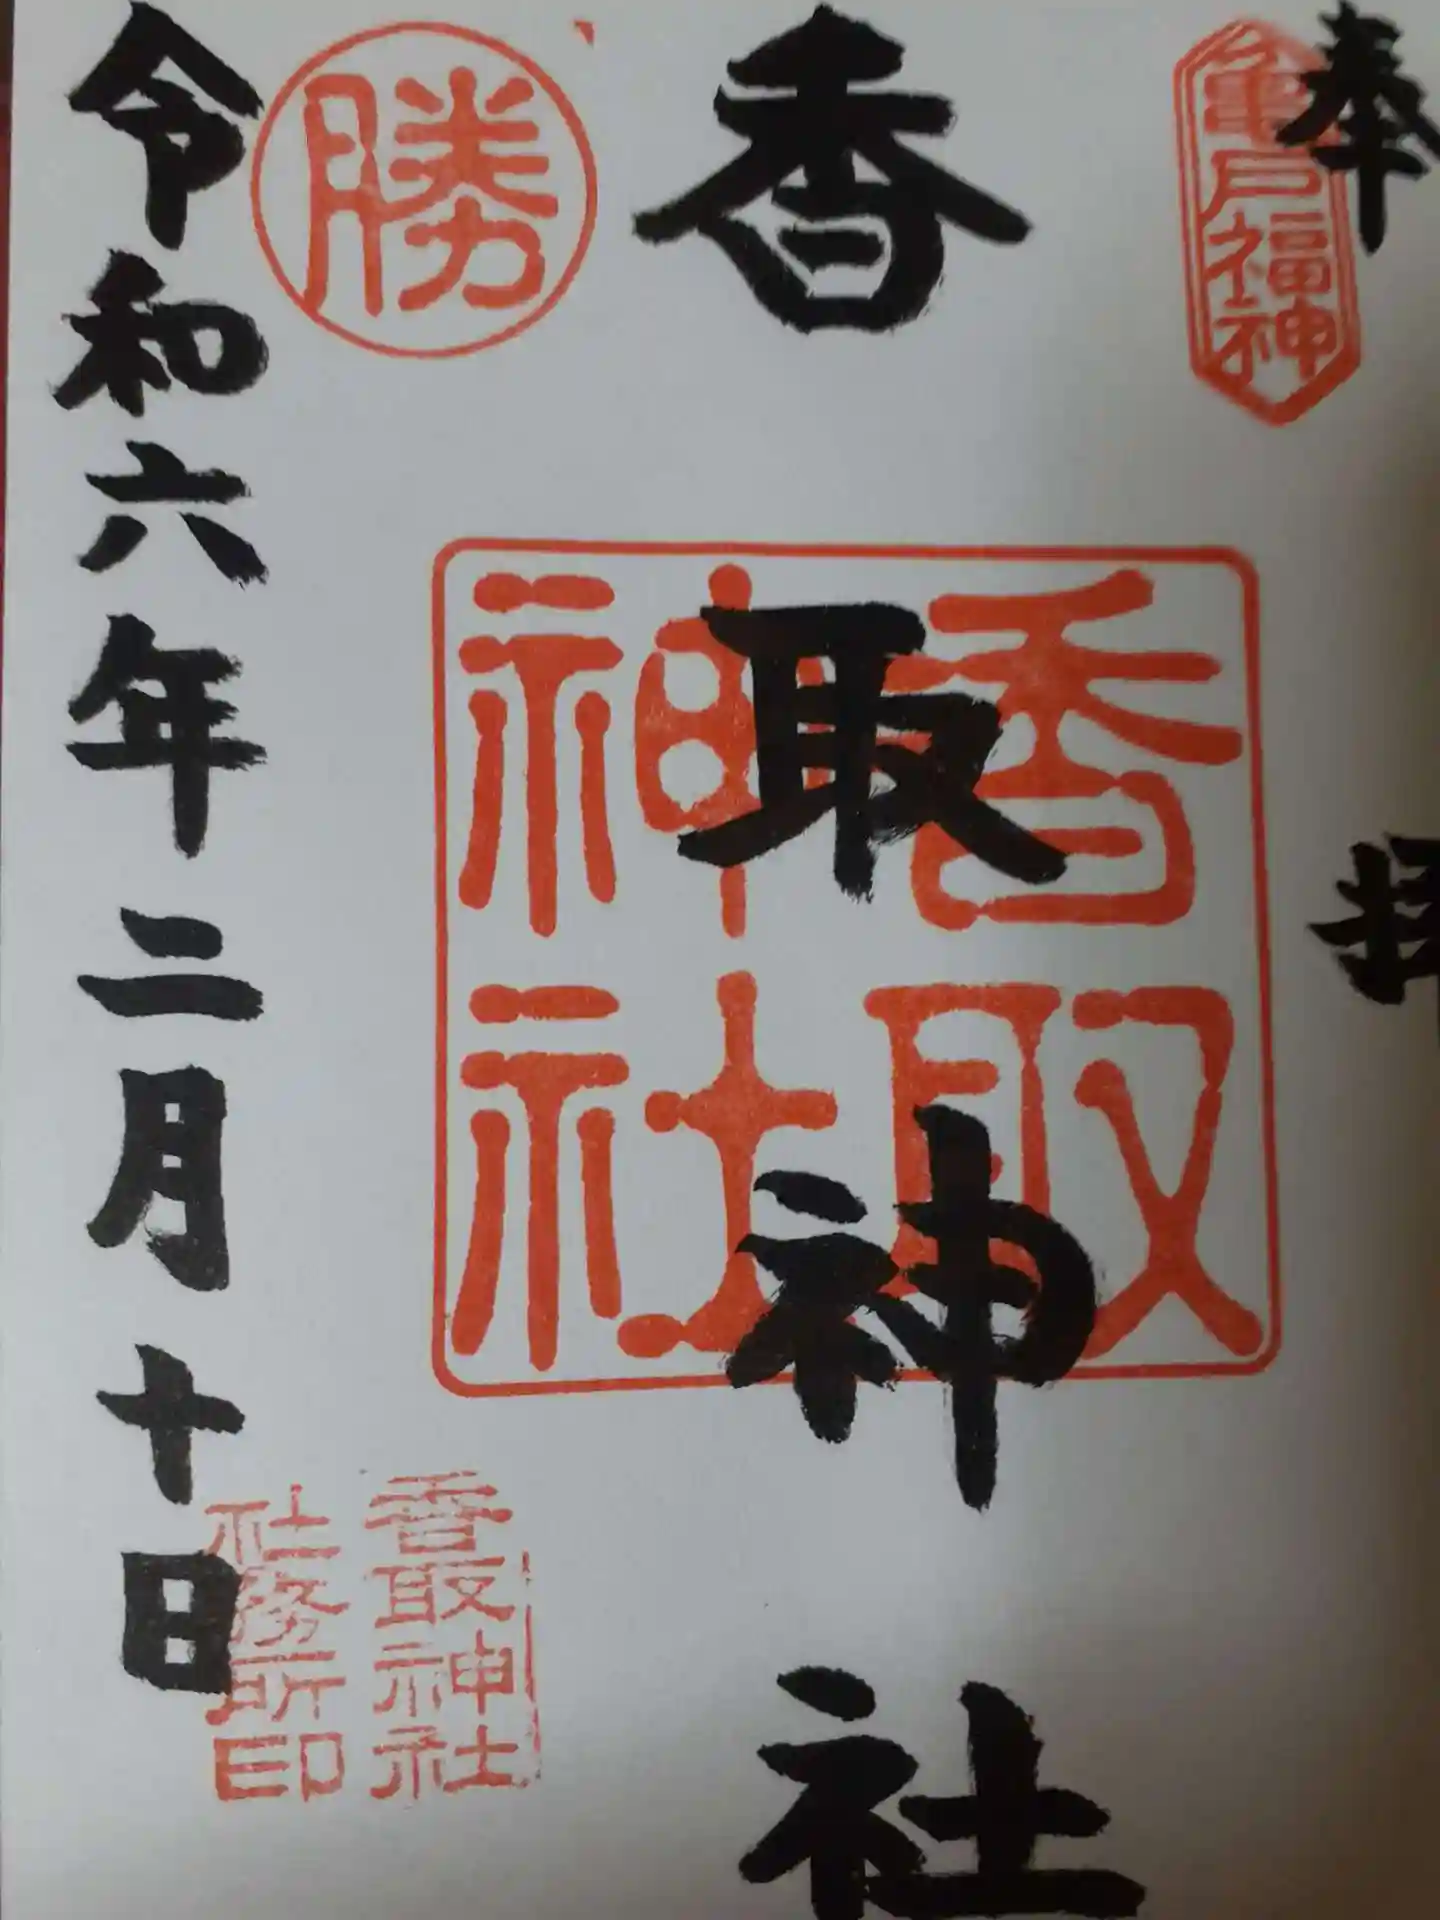 奉拝
亀戸
福神
香取神社
香取
神社
勝
令和六年二月十日
香取神社
社務所印